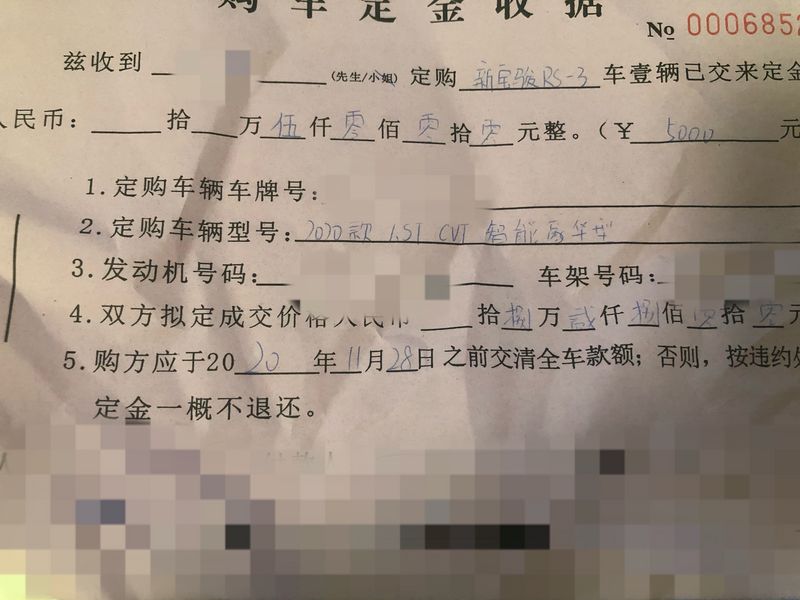 购车定金收据
No 0006852
兹收到 (先生/小姐) 定购 新宝骏RS-3 车壹辆已交来定金
人民币: 拾 万 伍 仟 零 佰 零 拾 零 元整。(￥ 5000 元
1.定购车辆车牌号:
2.定购车辆型号: 2020款 1.5T CVT 智能豪华型
3.发动机号码: 车架号码:
4.双方拟定成交价格人民币 拾 捌 万 贰 仟 捌 佰 拾 零 元
5.购方应于20 20 年 11 月 28 日之前交清全车款额;否则,按违约处
定金一概不退还。
付款人